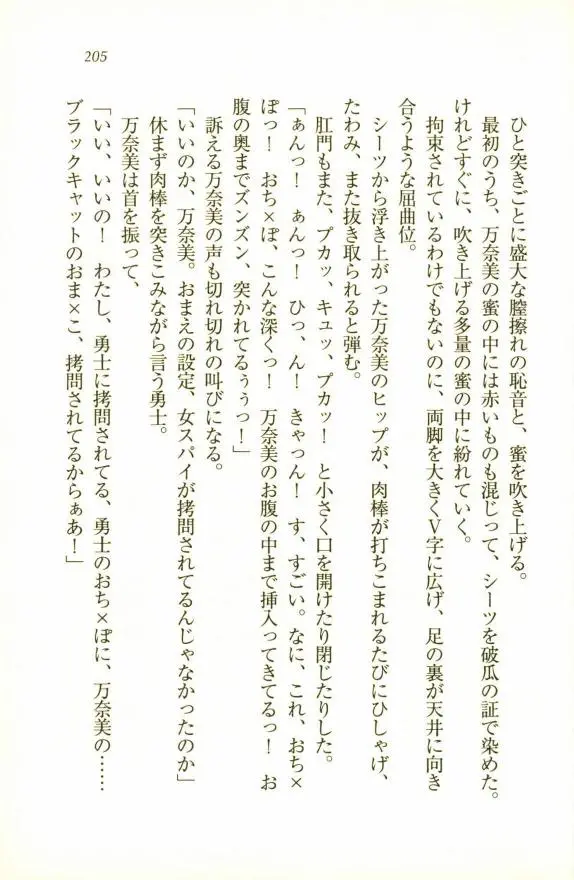 205
ひと突きごとに盛大な膣擦れの恥音と、蜜を吹き上げる。
最初のうち、万奈美の蜜の中には赤いものも混じって、シーツを破瓜の証で染めた。
けれどすぐに、吹き上げる多量の蜜の中に紛れていく。
拘束されているわけでもないのに、両脚を大きくV字に広げ、足の裏が天井に向き
合うような屈曲位。
シーツから浮き上がった万奈美のヒップが、肉棒が打ちこまれるたびにひしゃげ、
たわみ、また抜き取られると弾む。
肛門もまた、プカッ、キュッ、プカッ！　と小さく口を開けたり閉じたりした。
「ぁんっ！　ぁんっ！　ひっ、ん！　きゃっん！　す、すごい。なに、これ、おち×
ぽっ！　おち×ぽ、こんな深くっ！　万奈美のお腹の中まで挿入ってきてるっ！　お
腹の奥までズンズン、突かれてるぅぅっ！」
訴える万奈美の声も切れ切れの叫びになる。
「いいのか、万奈美。おまえの設定、女スパイが拷問されてるんじゃなかったのか」
休まず肉棒を突きこみながら言う勇士。
万奈美は首を振って、
「いい、いいの！　わたし、勇士に拷問されてる、勇士のおち×ぽに、万奈美の……
ブラックキャットのおま×こ、拷問されてるからぁあ！」